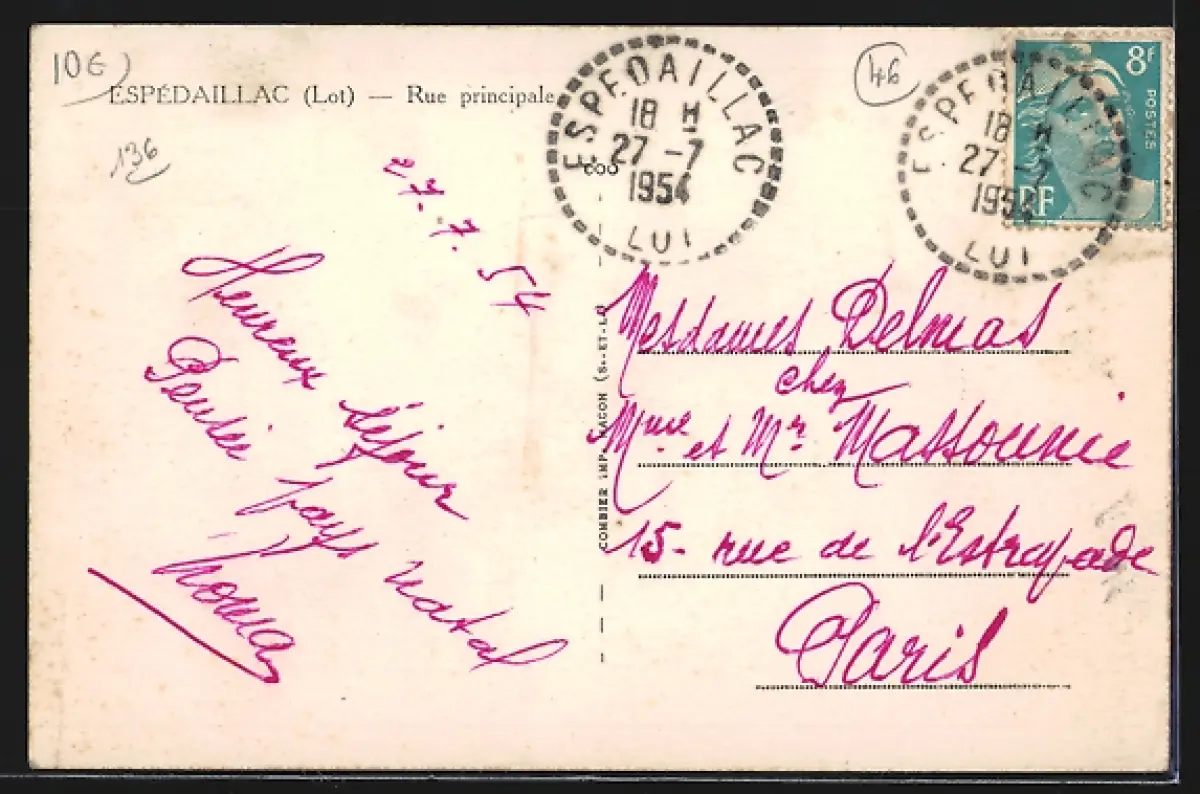 106
ESPÉDAILLAC (Lot) — Rue principale
136
ESPEDAILLAC
18 H
27 -7
1954
LOT
46
ESPEDAILLAC
18 H
27 -7
1954
LOT
8F
POSTES
RF
27.7.54
Heureux séjour
Pensée pays natal
Thomas
COMBIER IMP. MACON (S.-ET-L.)
Mesdames Delmas
chez
Mme et Mr Massounie
15- rue de l'Estrapade
Paris